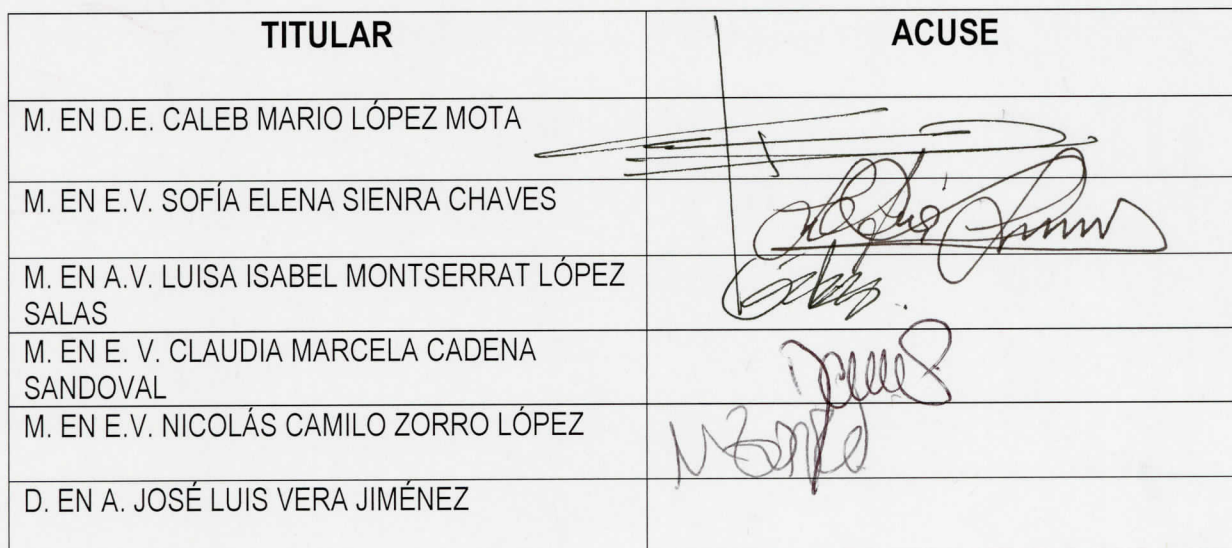 TITULAR
ACUSE
M. EN D.E. CALEB MARIO LÓPEZ MOTA
M. EN E.V. SOFÍA ELENA SIENRA CHAVES
M. EN A.V. LUISA ISABEL MONTSERRAT LÓPEZ
SALAS
M. EN E. V. CLAUDIA MARCELA CADENA
SANDOVAL
M. EN E.V. NICOLÁS CAMILO ZORRO LÓPEZ
D. EN A. JOSÉ LUIS VERA JIMÉNEZ